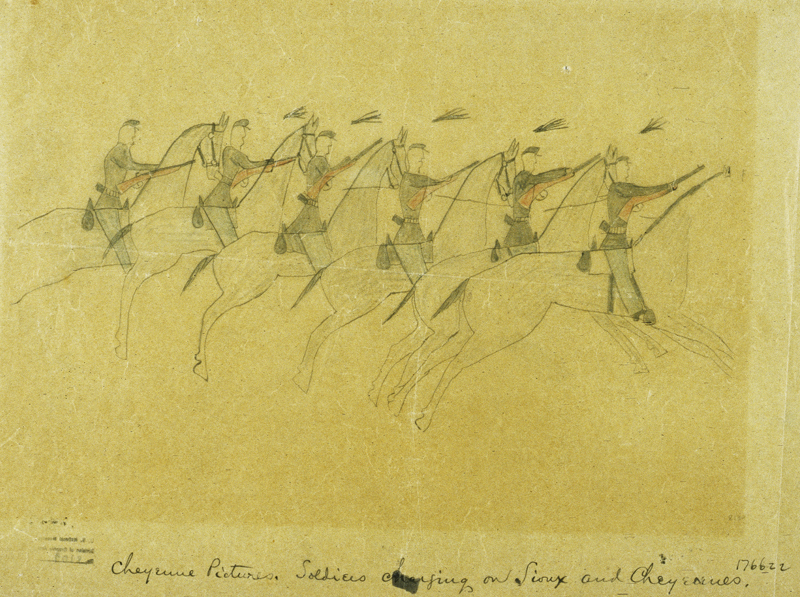 Cheyenne Pictures. Soldiers charging on Sioux and Cheyennes.
176622